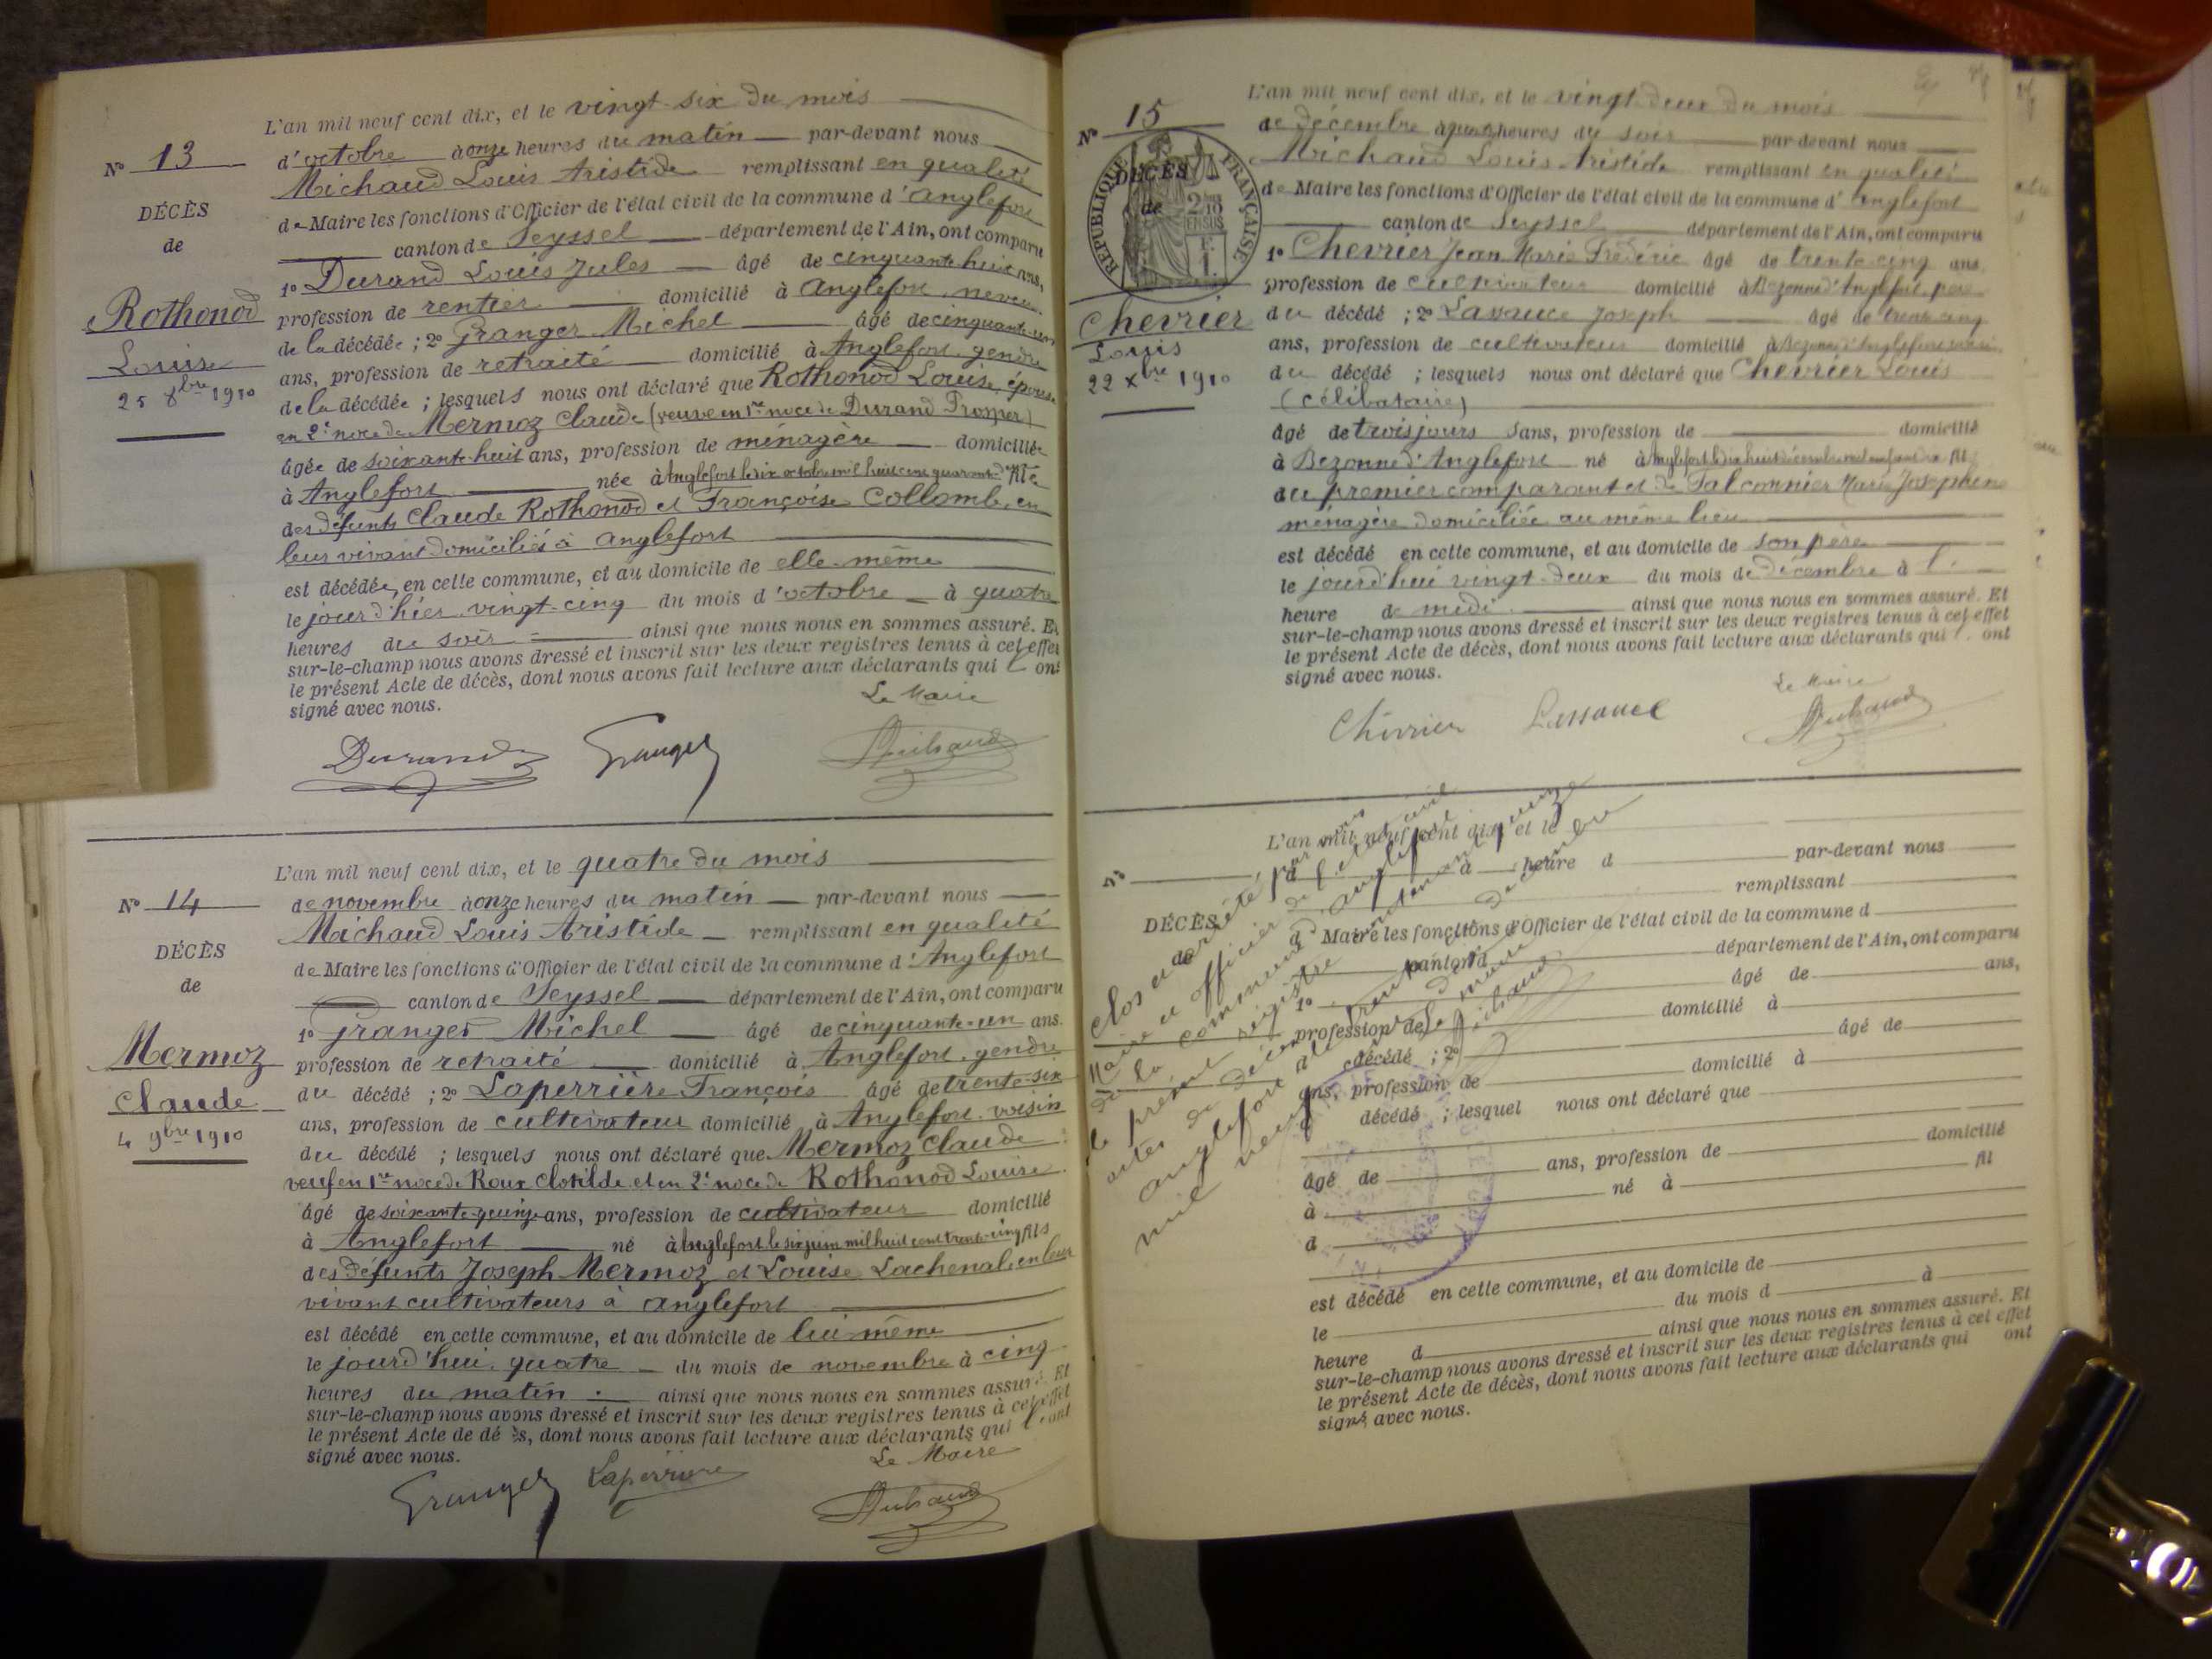 N° 13
DÉCÈS
de
Rothonod
Louise
25 8bre 1910
L'an mil neuf cent dix, et le vingt-six du mois
d'octobre à onze heures du matin par-devant nous
Michaud Louis Aristide remplissant en qualité
de Maire les fonctions d'Officier de l'état civil de la commune d'Anglefort
canton de Seyssel département de l'Ain, ont comparu
1° Durand Louis Jules âgé de cinquante-huit ans,
profession de rentier domicilié à Anglefort, neveu
de la décédée ; 2° Granger Michel âgé de cinquante-un
ans, profession de retraité domicilié à Anglefort, gendre
de la décédée ; lesquels nous ont déclaré que Rothonod Louise, épouse
en 2e noce de Mermoz Claude (veuve en 1re noce de Durand Prosper)
âgée de soixante-huit ans, profession de ménagère domiciliée
à Anglefort née à Anglefort le dix octobre mil huit cent quarante-d fille
des défunts Claude Rothonod et Françoise Collomb, en
leur vivant domiciliés à Anglefort
est décédée, en cette commune, et au domicile de elle-même
le jour d'hier vingt-cinq du mois d'octobre à quatre
heures du soir ainsi que nous nous en sommes assuré. Et
sur-le-champ nous avons dressé et inscrit sur les deux registres tenus à cet effet
le présent Acte de décès, dont nous avons fait lecture aux déclarants qui l'ont
signé avec nous.
Le Maire
Durand Granger Michaud
N° 14
DÉCÈS
de
Mermoz
Claude
4 9bre 1910
L'an mil neuf cent dix, et le quatre du mois
de novembre à onze heures du matin par-devant nous
Michaud Louis Aristide remplissant en qualité
de Maire les fonctions d'Officier de l'état civil de la commune d'Anglefort
canton de Seyssel département de l'Ain, ont comparu
1° Granger Michel âgé de cinquante-un ans
profession de retraité domicilié à Anglefort, gendre
du décédé ; 2° Laperrière François âgé de trente-six
ans, profession de cultivateur domicilié à Anglefort voisin
du décédé ; lesquels nous ont déclaré que Mermoz Claude
veuf en 1re noce de Roux Clotilde et en 2e noce de Rothonod Louise
âgé de soixante-quinze ans, profession de cultivateur domicilié
à Anglefort né à Anglefort le six juin mil huit cent trente-cinq fils
des défunts Joseph Mermoz et Louise Lachenal, en leur
vivant cultivateurs à Anglefort
est décédé en cette commune, et au domicile de lui-même
le jourd'hui quatre du mois de novembre à cinq
heures du matin ainsi que nous nous en sommes assuré. Et
sur-le-champ nous avons dressé et inscrit sur les deux registres tenus à cet effet
le présent Acte de décès, dont nous avons fait lecture aux déclarants qui l'ont
signé avec nous.
Le Maire
Granger Laperrière Michaud
N° 15
DÉCÈS
de
RÉPUBLIQUE FRANÇAISE
Chevrier
Louis
22 Xbre 1910
L'an mil neuf cent dix, et le vingt-deux du mois
de décembre à heures du soir par-devant nous
Michaud Louis Aristide remplissant en qualité
de Maire les fonctions d'Officier de l'état civil de la commune d'Anglefort
canton de Seyssel département de l'Ain, ont comparu
1° Chevrier Jean Marie Frédéric âgé de trente-cinq ans
profession de cultivateur domicilié à Bezonne d'Anglefort, père
du décédé ; 2° Lavauce Joseph âgé de trente-cinq
ans, profession de cultivateur domicilié à Bezonne d'Anglefort, voisin
du décédé ; lesquels nous ont déclaré que Chevrier Louis
(célibataire)
âgé de trois jours sans, profession de domicilié
à Bezonne d'Anglefort né à Anglefort le dix huit décembre mil neuf cent dix fils
du premier comparant et de Falconnier Marie Joséphine
ménagère domiciliée au même lieu
est décédé en cette commune, et au domicile de son père
le jourd'hui vingt-deux du mois de décembre à l'
heure de midi ainsi que nous nous en sommes assuré. Et
sur-le-champ nous avons dressé et inscrit sur les deux registres tenus à cet effet
le présent Acte de décès, dont nous avons fait lecture aux déclarants qui l'ont
signé avec nous.
Le Maire
Chevrier Michaud
N°
DÉCÈS
de
L'an mil neuf cent dix, et le
d à heure d par-devant nous
remplissant
d Maire les fonctions d'Officier de l'état civil de la commune d
canton d département de l'Ain, ont comparu
1° âgé de ans,
profession de domicilié à
décédé ; 2° âgé de
ans, profession de domicilié à
d décédé ; lesquel nous ont déclaré que
âgé de ans, profession de domicilié
à né à fil
d
est décédé en cette commune, et au domicile de
le du mois d à
heure d ainsi que nous nous en sommes assuré. Et
sur-le-champ nous avons dressé et inscrit sur les deux registres tenus à cet effet
le présent Acte de décès, dont nous avons fait lecture aux déclarants qui ont
signé avec nous.
Clos et arrêté par nous
Maire et officier de l'état civil
de la commune d'Anglefort
le présent registre contenant quinze
actes de décès
Anglefort le trente un décembre
mil neuf cent dix
Le Maire
Michaud